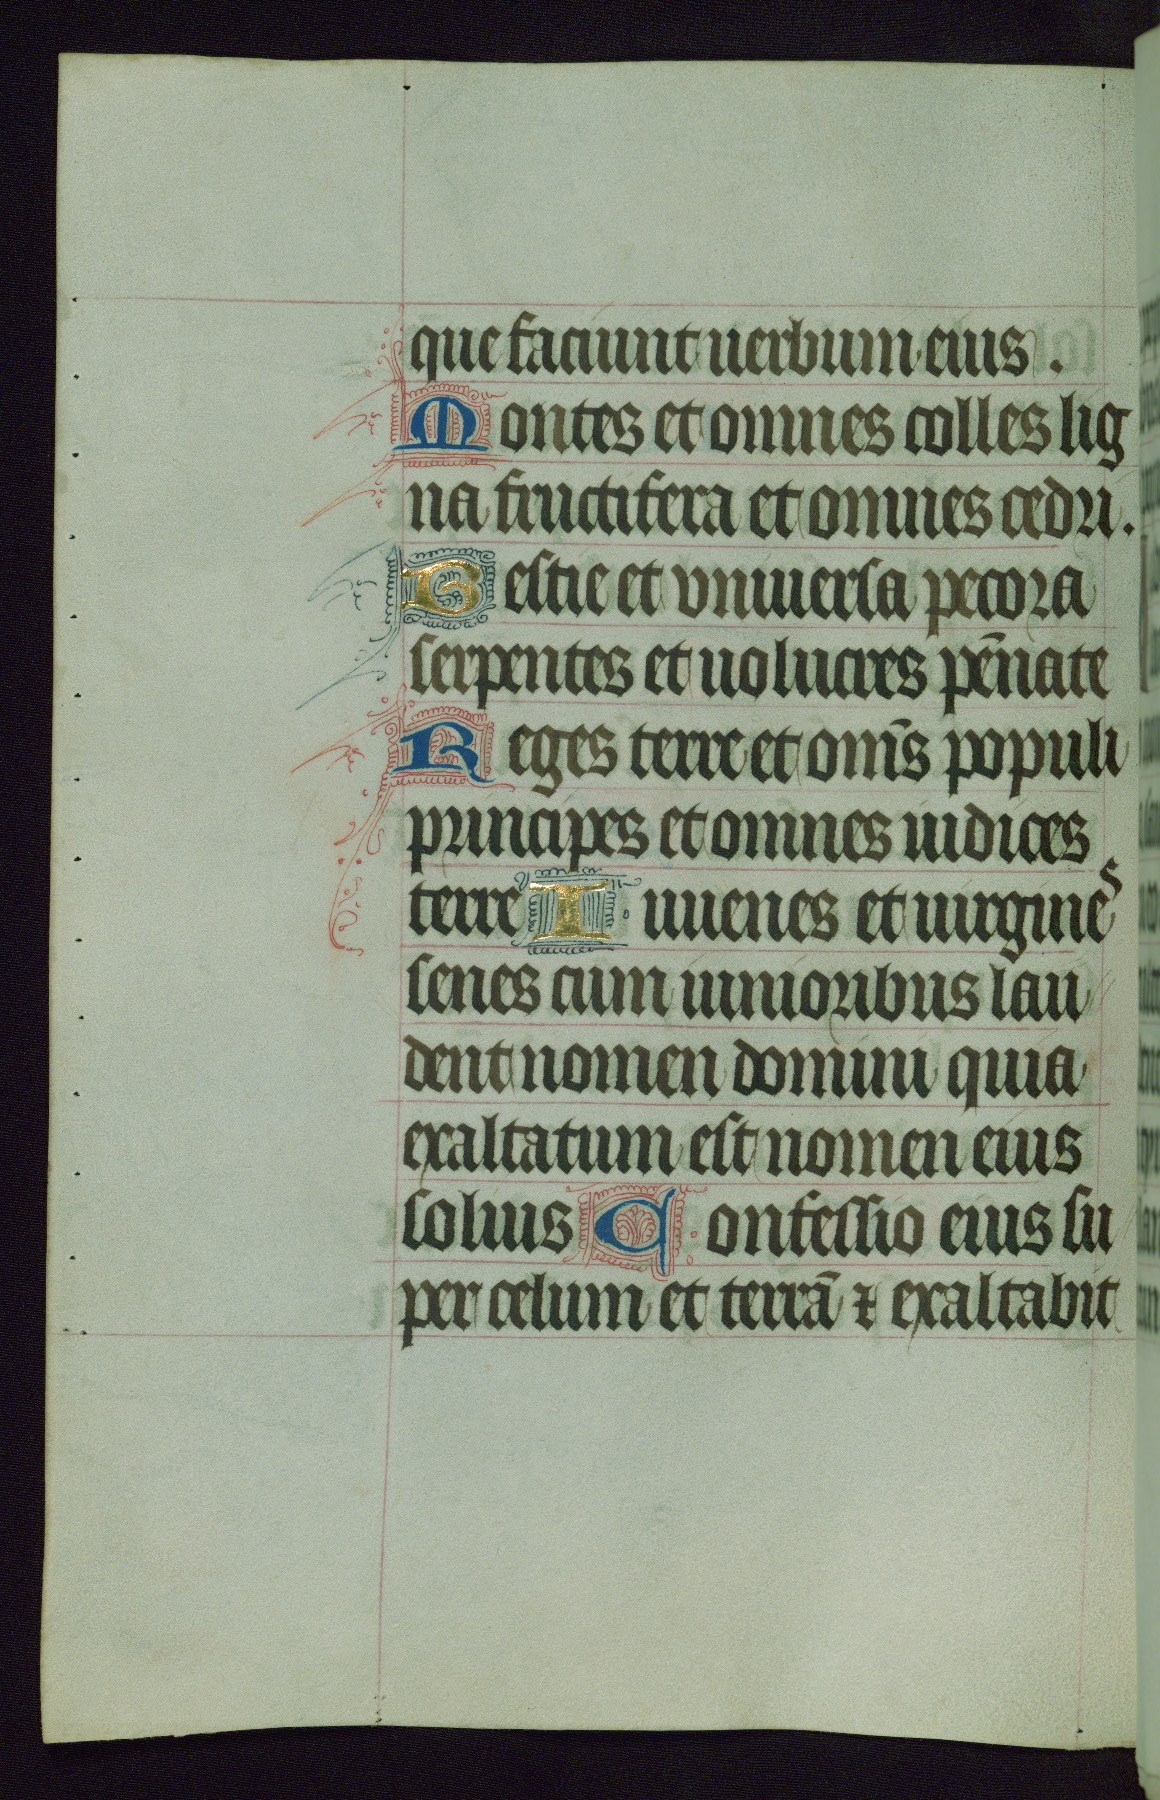 que faciunt uerbum eius .
Montes et omnes colles lig
na fructifera et omnes cedri .
Bestie et vniuersa pecora
serpentes et uolucres pēnate
Reges terre et om̄s populi
principes et omnes iudices
terre Iuuenes et uirgines
senes cum iunioribus lau
dent nomen domini quia
exaltatum est nomen eius
solius Confessio eius su
per celum et terrā ⁊ exaltabit